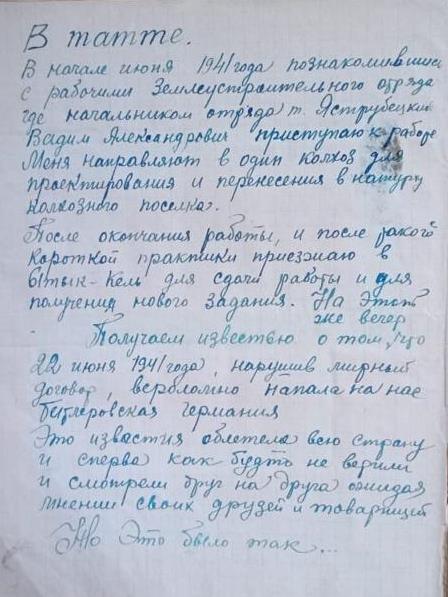 В татте.
В начале июня 1941 года познакомившись
с рабочими Землеустроительного отряда
где начальником отряда т. Яструбецкий
Вадим Александрович приступаю к работе
Меня направляют в один колхоз для
проектирования и перенесения в натуру
колхозного поселка.
После окончания работы, и после такой
короткой практики приезжаю в
Ытык-Кель для сдачи работы и для
получения нового задания. На этот
же вечер
Получаем известью о том, что
22 июня 1941 года, нарушив мирный
договор, вероломно напала на нас
Гитлеровская Германия
Это известия облетела всю страну
и сперва как будть не верили
и смотрели друг на друга ожидая
мнении своих друзей и товарищей
Но Это было так...